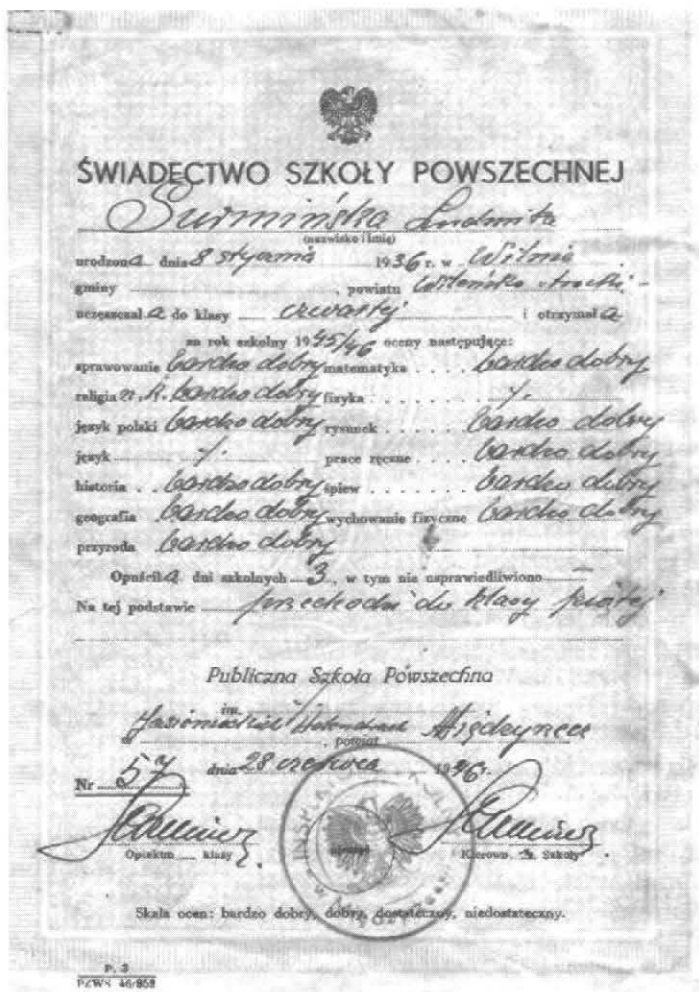 ŚWIADECTWO SZKOŁY POWSZECHNEJ
Surmińska Ludmiła
(nazwisko i imię)
urodzona dnia 8 stycznia 1936 r. w Wilnie
gminy , powiatu Wileńsko-trocki
uczęszczała do klasy czwartej i otrzymała
za rok szkolny 1945/46 oceny następujące:
sprawowanie bardzo dobry matematyka . . . . bardzo dobry
religia bardzo dobry fizyka . . . . . . . /.
język polski bardzo dobry rysunek . . . . . . bardzo dobry
język /. prace ręczne . . . . bardzo dobry
historia . . bardzo dobry śpiew . . . . . . . bardzo dobry
geografia bardzo dobry wychowanie fizyczne bardzo dobry
przyroda bardzo dobry
Opuściła dni szkolnych 3, w tym nie usprawiedliwiono —
Na tej podstawie przechodzi do klasy piątej
Publiczna Szkoła Powszechna
im.
, powiat
Nr 57 dnia 28 czerwca 1946 r.
Opiekun klasy Kierown. Szkoły
Skala ocen: bardzo dobry, dobry, dostateczny, niedostateczny.
P. 3
PZWS 46/852